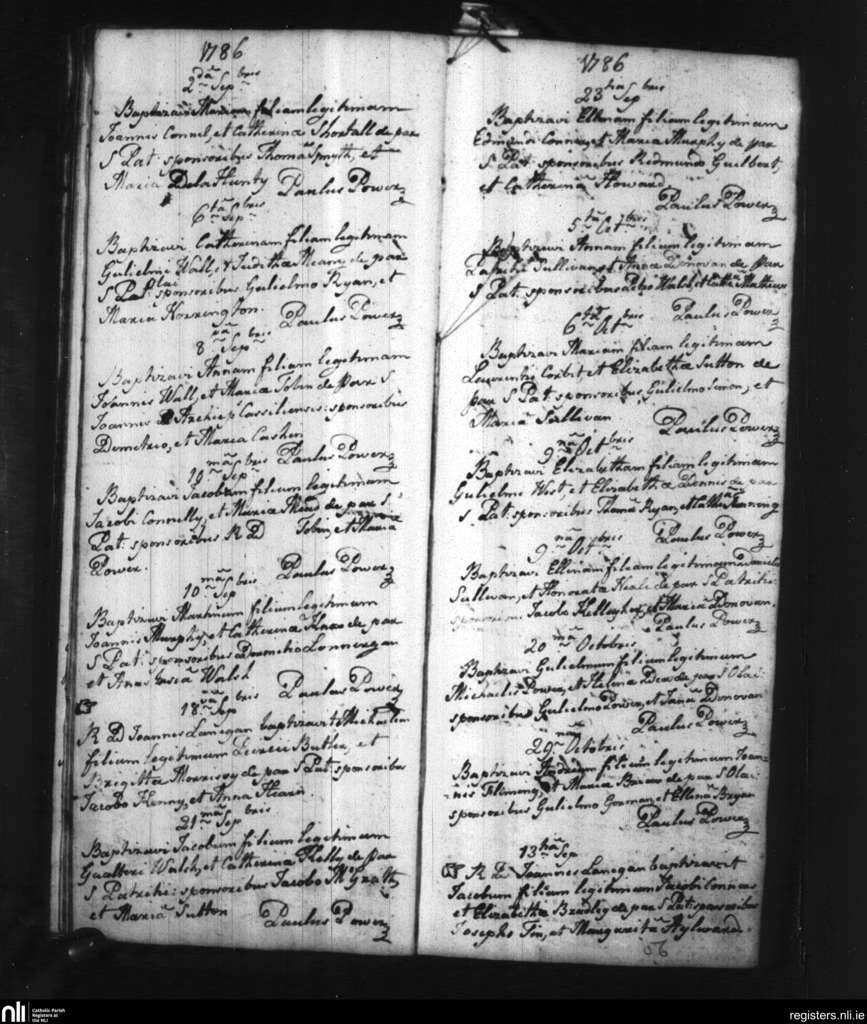 1786
2da Sepbris
Baptizavi Mariam filiam legitimam
Joannis Connel, et Catherina Shortall de par
S Pat: sponsoribus Thoma Smyth, et
Maria Dela Hunty Paulus Power
6ta Sepbris
Baptizavi Catherinam filiam legitimam
Gulielmi Wall, & Juditha Meany de par
S Pat: sponsoribus Gulielmo Ryan, et
Maria Horrington. Paulus Power
8va Sepbris
Baptizavi Annam filiam legitimam
Joannis Wall, et Maria Tobin de Par S
Joannis Archiep Cassiliensis: sponsoribus
Demetrio, et Maria Cashen
Paulus Power
10ma Sepbris
Baptizavi Jacobum filium legitimum
Jacobi Connelly, et Maria de par S
Pat: sponsoribus R D Tobin, et Maria
Power. Paulus Power
10ma Sepbris
Baptizavi Martinum filium legitimum
Joannis Murphy, et Catherina de par
S Pat: sponsoribus Demetrio Lonnergan
et Anastasia Walsh Paulus Power
18va Sepbris
R D Joannes Lanegan baptizavit Michaelem
filium legitimum Butler, et
Brigitta Morrissy de par S Pat: sponsoribus
Jacobo Kenny, et Anna Hearn
21ma Sepbris
Baptizavi Jacobum filium legitimum
Gualteri Walsh, et Catherina Kelly de par
S Patritii: sponsoribus Jacobo McGrath,
et Maria Sutton Paulus Power
1786
23tia Sepbris
Baptizavi Ellenam filiam legitimam
Edmundi Connery, et Maria Murphy de par
S. Pat: sponsoribus Redmundo Guilbert,
et Catherina Howard
Paulus Power
5ta Octbris
Baptizavi Annam filiam legitimam
Patritii Sullivan, et Anna Donovan de Par
S Pat: sponsoribus Petro Walsh, et Matheus
Paulus Power
6ta Octbris
Baptizavi Mariam filiam legitimam
Laurentii Corbit et Elizabetha Sutton de
par S Pat sponsoribus Gulielmo Simon, et
Maria Sullivan Paulus Power
9na Octbris
Baptizavi Elizabetham filiam legitimam
Gulielmi West, et Elizabetha Dennis de par
S Pat: sponsoribus Thoma Ryan, et Fanning
Paulus Power
9na Octbris
Baptizavi Ellenam filiam legitimam Danielis
Sullivan, et Honorata Keale de par S Patritii:
sponsoribus Jacobo Kellegher, et Maria Donovan.
Paulus Power
20ma Octobris
Baptizavi Gulielmum filium legitimum
Michaelis Power, et Helena de par S Olai
sponsoribus Gulielmo Power, et Donovan
Paulus Power
29na Octobris
Baptizavi Andream filium legitimum Joan-
nis Fleming, et Maria de par S Olai:
sponsoribus Gulielmo Gorman, et Ellena Bryan
Paulus Power
13tia Sep
R D Joannes Lanegan baptizavit
Jacobum filium legitimum Jacobi Connors
et Elizabetha Bradley de par S Pat: sponsoribus
Josepho Fin, et Margarita Aylward.
56
nli Catholic Parish
Registers at
the NLI
registers.nli.ie